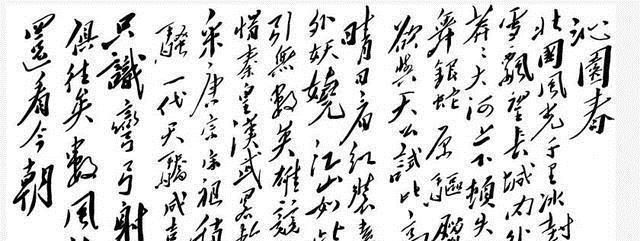 沁園春
北國風光千里冰封
雪飄望長城內外
莽〻大河上下頓失
舞銀蛇原驅臘
欲與天公試比高
晴日看紅裝素
外妖嬈江山如此
引無數英雄競
惜秦皇漢武略輸
采唐宗宋祖稍
騷一代天驕成吉
只識彎弓射
俱往矣數風
還看今朝